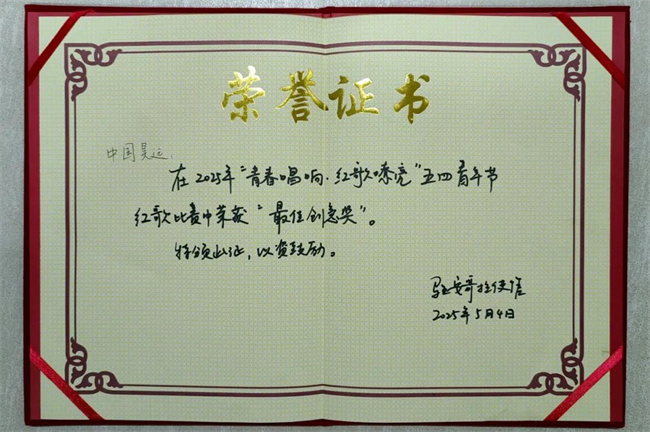 荣誉证书
中国昊远
在2025年"青春唱响·红歌嘹亮"五四青年节
红歌比赛中荣获"最佳创意奖"。
特颁此证,以资鼓励。
驻安哥拉使馆
2025年5月4日